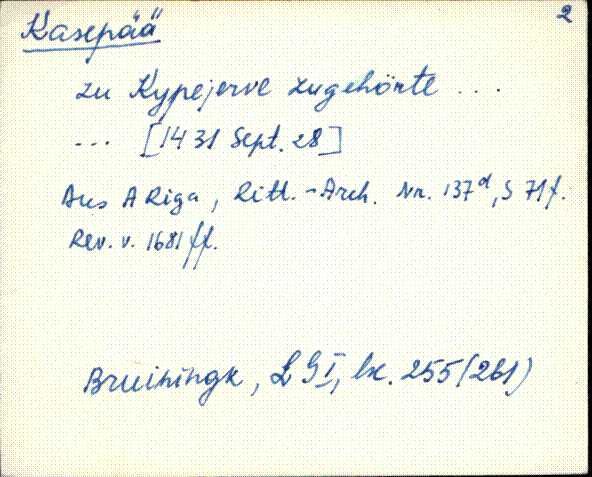 2
Kasepää
zu Kypejerve zugehörte ...
... [1431 Sept. 28]
Aus A Riga, Ritt.-Arch. Nr. 137d, S 71f.
Rev. v. 1681 ff.
Bruiningk, LGI, lk. 255 (261)